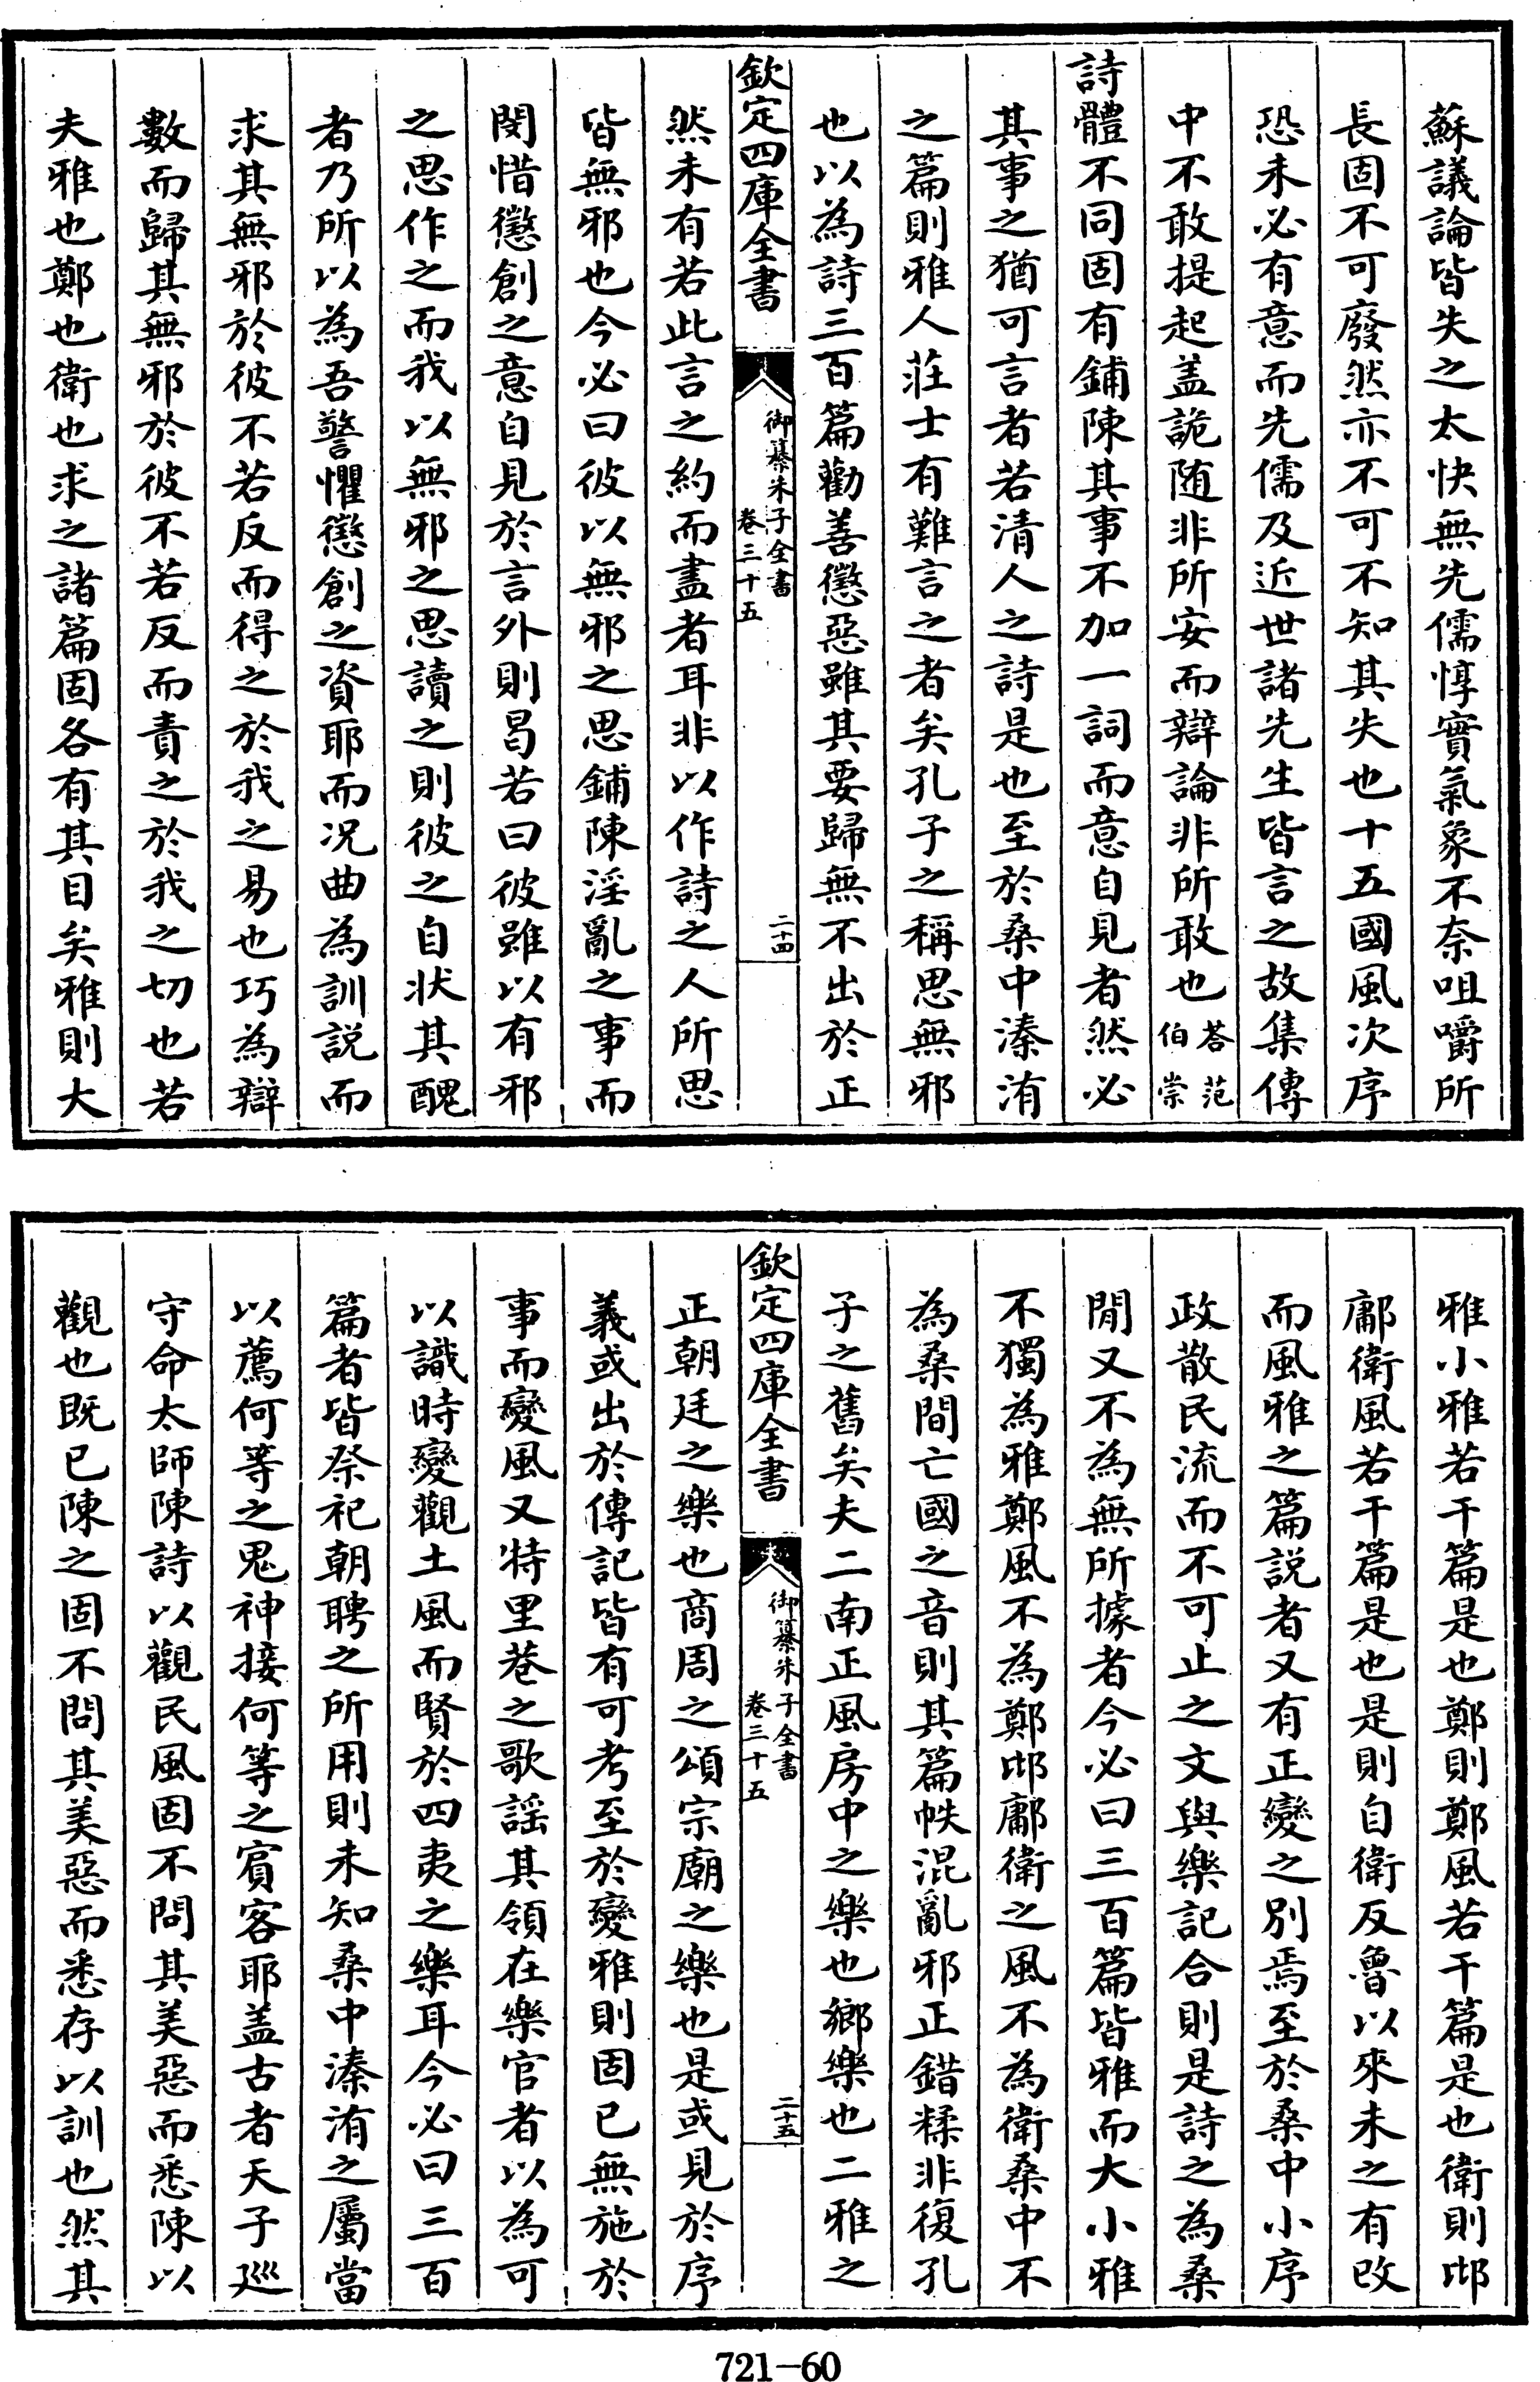 蘇議論皆失之太快無先儒惇實氣象不奈咀嚼所
長固不可廢然亦不可不知其失也十五國風次序
恐未必有意而先儒及近世諸先生皆言之故集傳
中不敢提起盖詭随非所安而辯論非所敢也答范伯崇
詩體不同固有鋪陳其事不加一詞而意自見者然必
其事之猶可言者若清人之詩是也至於桑中溱洧
之篇則雅人莊士有難言之者矣孔子之稱思無邪
也以為詩三百篇勸善懲惡雖其要歸無不出於正
欽定四庫全書
御纂朱子全書
卷三十五
二十四
然未有若此言之約而盡者耳非以作詩之人所思
皆無邪也今必曰彼以無邪之思鋪陳淫亂之事而
閔惜懲創之意自見於言外則曷若曰彼雖以有邪
之思作之而我以無邪之思讀之則彼之自状其醜
者乃所以為吾警懼懲創之資耶而况曲為訓説而
求其無邪於彼不若反而得之於我之易也巧為辯
數而歸其無邪於彼不若反而責之於我之切也若
夫雅也鄭也衛也求之諸篇固各有其目矣雅則大
雅小雅若干篇是也鄭則鄭風若干篇是也衛則邶
鄘衛風若干篇是也是則自衛反魯以來未之有改
而風雅之篇説者又有正變之別焉至於桑中小序
政散民流而不可止之文與樂記合則是詩之為桑
閒又不為無所據者今必曰三百篇皆雅而大小雅
不獨為雅鄭風不為鄭邶鄘衛之風不為衛桑中不
為桑間亡國之音則其篇帙混亂邪正錯糅非復孔
子之舊矣夫二南正風房中之樂也鄉樂也二雅之
欽定四庫全書
御纂朱子全書
卷三十五
二十五
正朝廷之樂也商周之頌宗廟之樂也是或見於序
義或出於傳記皆有可考至於變雅則固已無施於
事而變風又特里巷之歌謡其領在樂官者以為可
以識時變觀土風而賢於四夷之樂耳今必曰三百
篇者皆祭祀朝聘之所用則未知桑中溱洧之屬當
以薦何等之鬼神接何等之賓客耶盖古者天子廵
守命太師陳詩以觀民風固不問其美惡而悉陳以
觀也既已陳之固不問其美惡而悉存以訓也然其
721-60